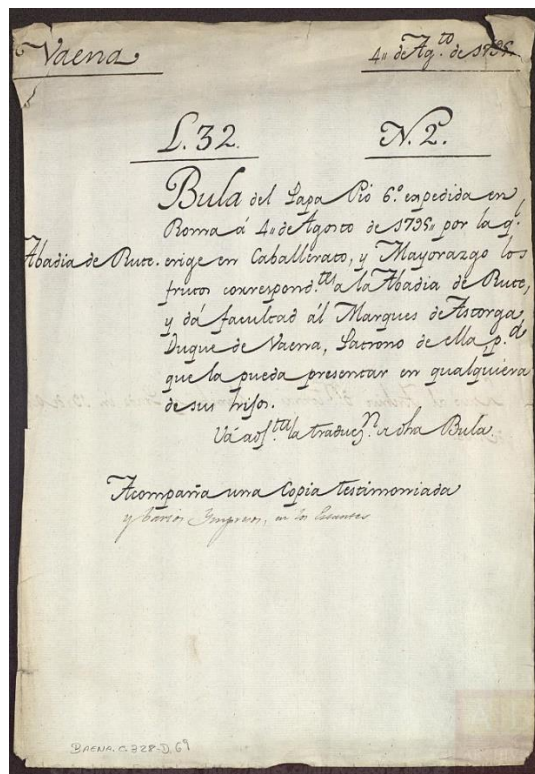 Vaena
4„ de Ag.to de 1795„
L.32.
N.2.
Bula del Papa Pio 6.º expedida en
Roma á 4„ de Agosto de 1795„ por la q.e
Abadia de Rute. erige en Caballerato, y Mayorazgo los
frutos correspond.tes a la Abadia de Rute,
y dá facultad ál Marques de Astorga,
Duque de Vaena, Patrono de ella p.a
que la pueda presentar en qualquiera
de sus hijos.
Vá adj.ta la traducc.n de dha Bula.
Acompaña una Copia testimoniada
y barios Impresos, en los Estantes
BAENA, C.328-D.69